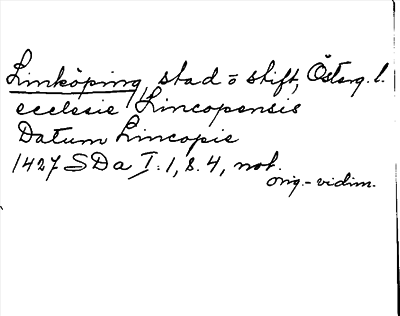 Linköping, stad o shift, Österg. l.
ecclesie Lincopensis
Datum Lincopie
1427 SDa I: 1, s. 4, not.
orig.-vidim.